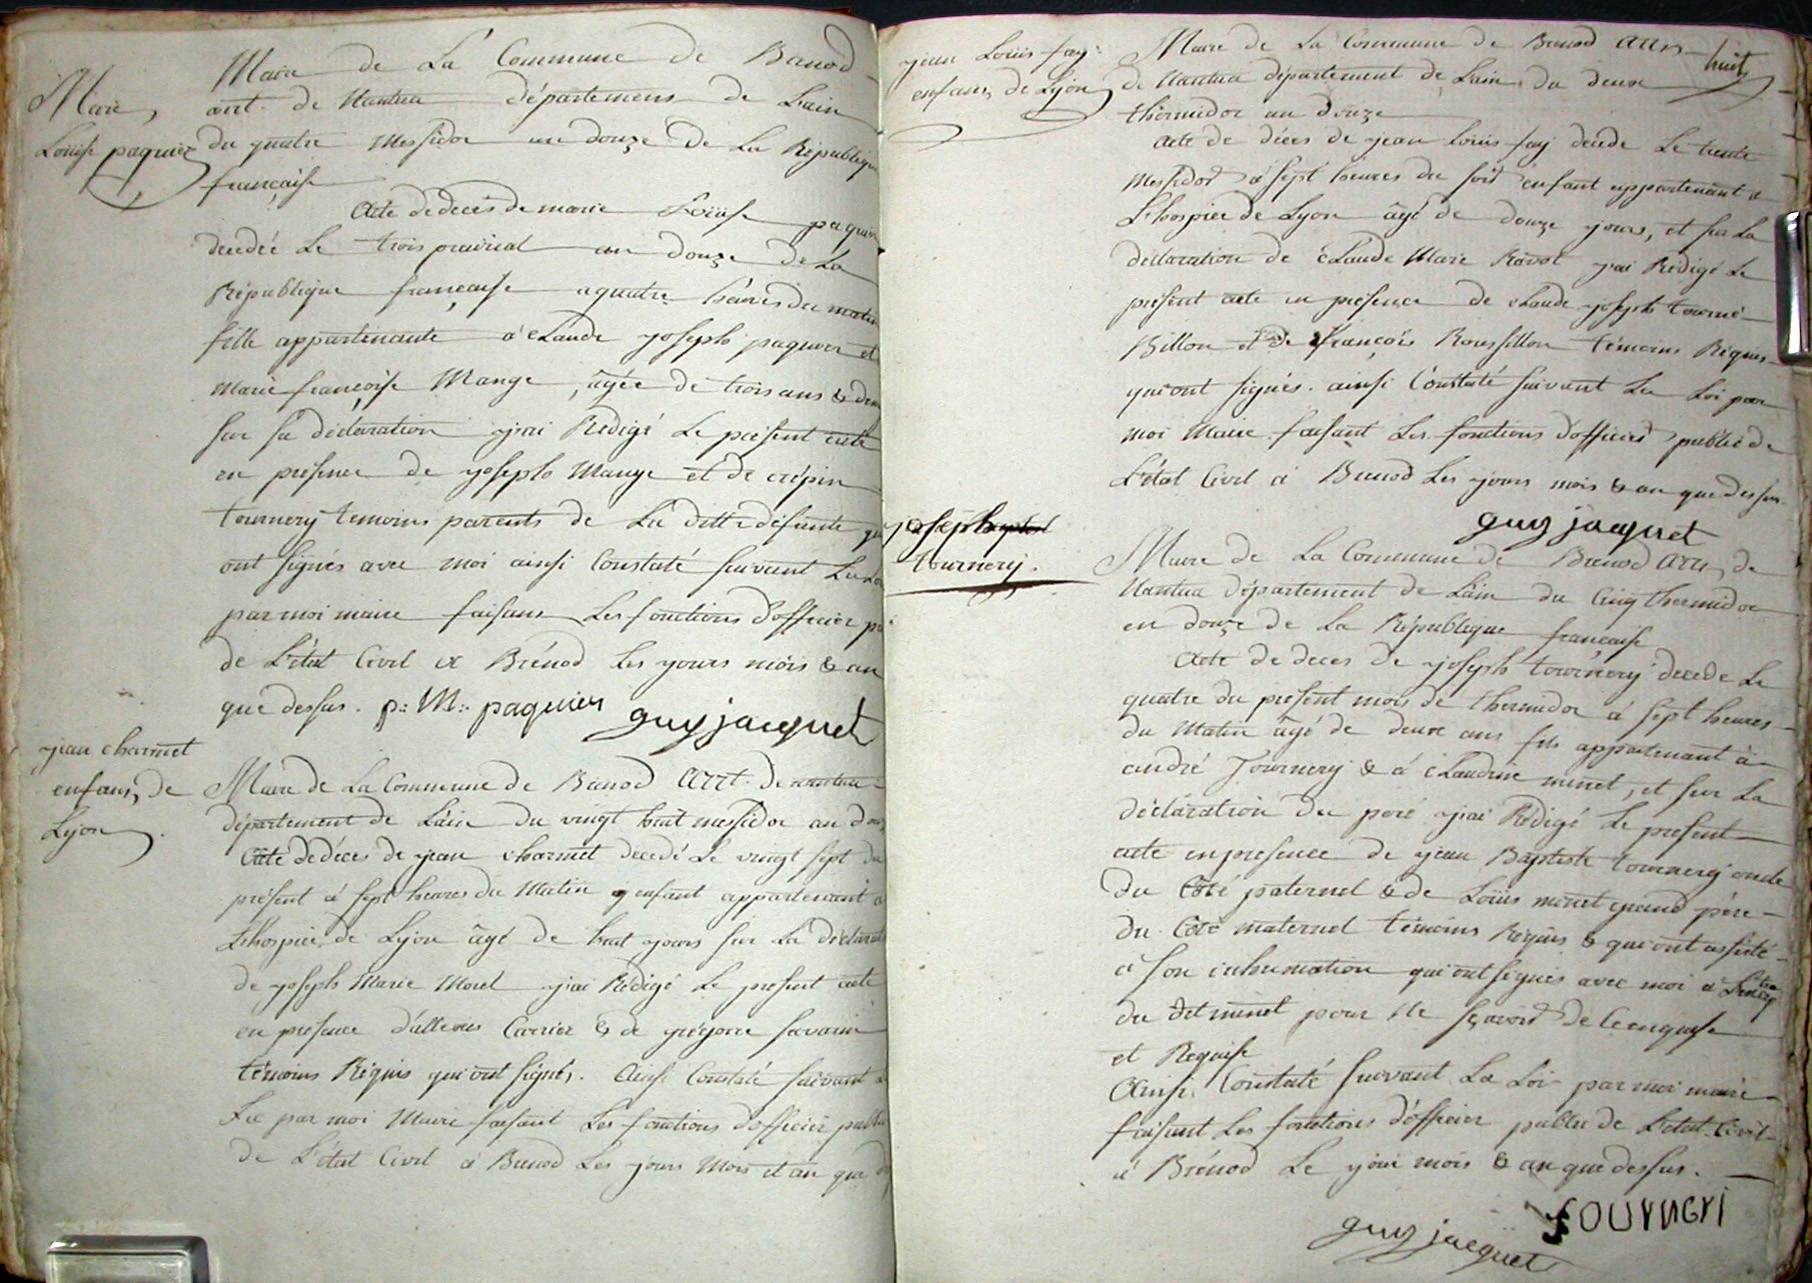 Marie
Louise paquier
Maire de La Commune de Brenod
arrt. de Nantua département de Lain
du quatre Messidor an douze de La République
française
Acte de deces de marie Loüise paquier
decedée Le trois prairial an douze de La
République française a quatre heures du matin
fille appartenante à Claude joseph paquier et
Marie françoise Mange, âgée de trois ans &
sur sa déclaration j'ai Rédigé Le présent acte
en présence de joseph Mange et de crépin
tournery temoins parents de La ditte défunte qui
ont signés avec moi ainsi Constaté suivant La Loi
par moi maire faisant Les fonctions d'officier
de L'état Civil à Brénod Les jours mois & an
que dessus. p: M: paquier guy jacquet
jean charmet
enfans de
Lyon
Maire de La Commune de Brenod Arrt. de nantua
département de Láin du vingt huit messidor an
Acte de déces de jean charmet decedé Le vingt sept du
présent à sept heures du Matin enfant appartenant à
L'hospice de Lyon âgé de huit jours sur La
de joseph Marie Morel j'ai Rédigé Le présent acte
en présence Carrier & de gregoire savarin
témoins Réquis qui ont signés. Ainsi Constaté suivant
Loi par moi Maire faisant Les fonctions d'officier
de L'état Civil à Brenod Les jours Mois et an que
jean Loüis fay
enfans de Lyon
huit
Maire de La Commune de Brenod Arrt
de Nantua département de Lain du deux
thermidor an douze
Acte de déces de jean Loüis fay décédé Le trente
Messidor à sept heures du soir enfant appartenant à
L'hospice de Lyon âgé de douze jours, et sur La
déclaration de Claude Marie Ravot j'ai Rédigé Le
présent acte en présence de Claude joseph tourné
Billon et de françois Roussillon témoins Réquis
qui ont signés. ainsi Constaté suivant La Loi par
moi Maire faisant Les fonctions d'officier public de
L'état Civil à Brenod Les jours mois & an que dessus.
guy jacquet
joseph
tournery.
Maire de La Commune de Brenod Arrt, de
Nantua département de Láin du Cinq thermidor
en douze de La République française
Acte de deces de joseph tournery decede Le
quatre du present mois de thermidor à sept heures
du Matin âgé de deux ans fils appartenant à
andré Tournery & à Claudine minet, et sur La
déclaration du pere j'ai Rédigé Le present
acte en presence de jean Baptiste tournery oncle
du Côté paternel & de Loüis minet grand pére
du Côté maternel témoins Réquis & qui ont assisté
à son inhumation qui ont signés avec moi à
du dit minet pour ne sçavoir de ce enquise
et Requise
Ainsi Constaté suivant La Loi par moi maire
faisant Les fonctions d'officier public de L'état Civil
à Brénod Le jour mois & an que dessus.
tournery
guy jacquet